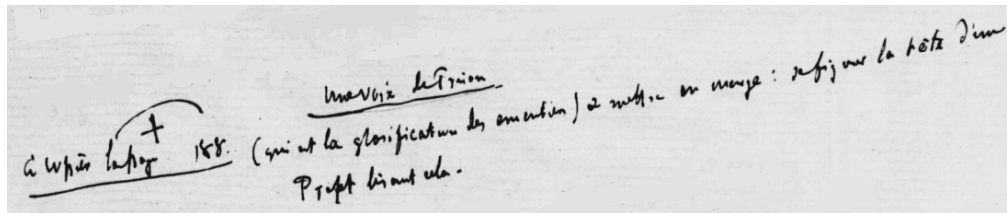 une voix de Train
à copier la page 188. (qui est la glorification des ) à mettre en marge : se figurer la tête d'un
Préfet lisant cela.